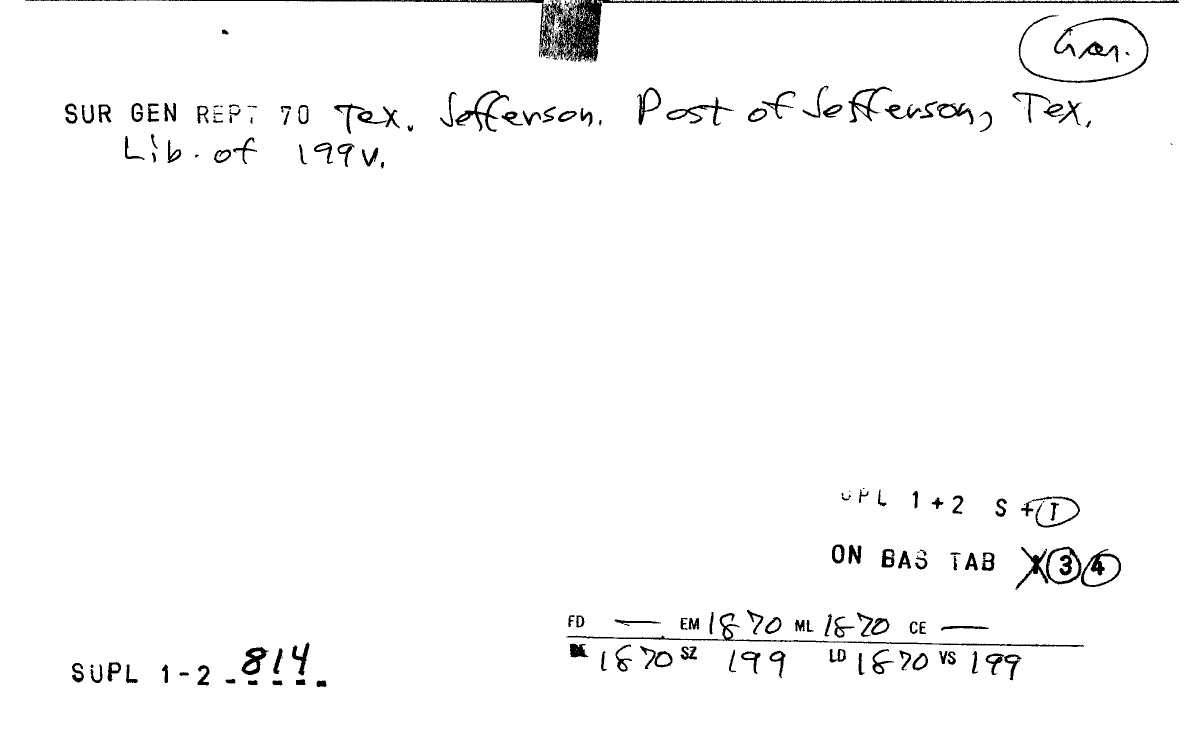 SUR GEN REPT 70 Tex. Jefferson. Post of Jefferson, Tex.
Lib. of 199 v.
UPL 1 + 2 S + I
ON BAS TAB 3 4
FD — EM 1870 ML 1870 CE —
1870 SZ 199 LD 1870 VS 199
SUPL 1-2 814